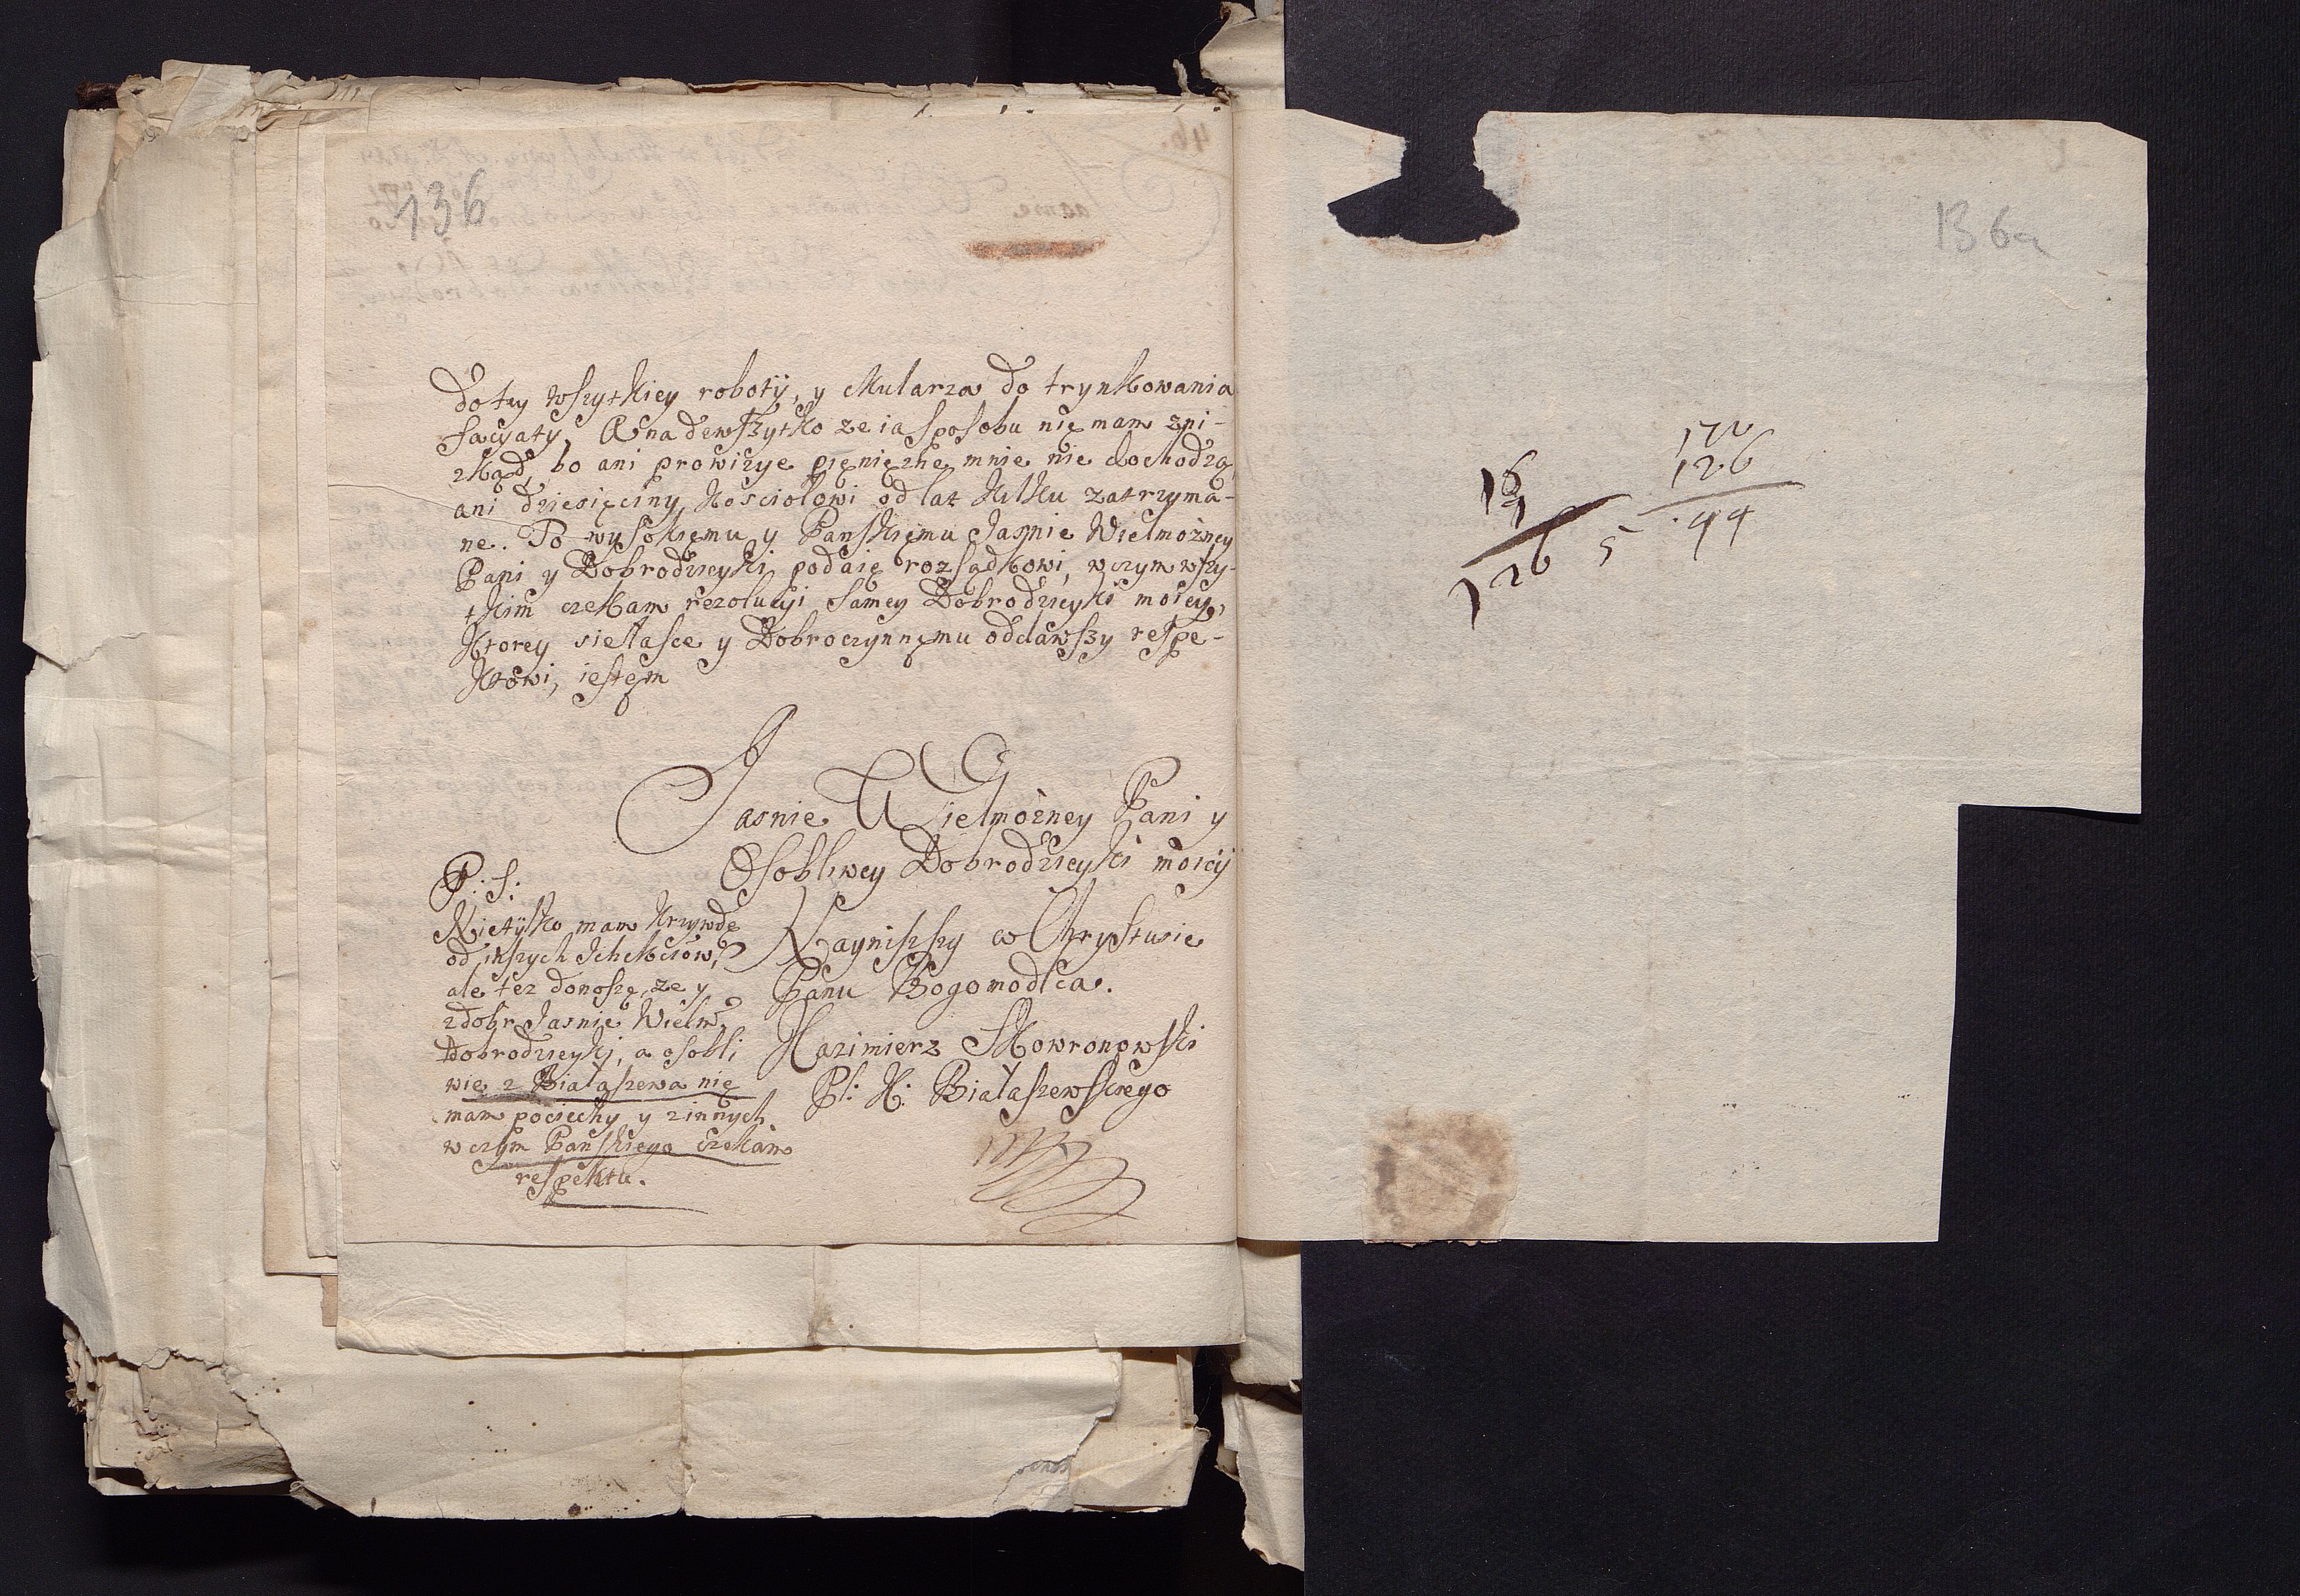 136
do tey wszytkiey robotÿ, y Mularza do trynkowania
facyaty, A nadewszytko ze ia sposobu nię mam zni-
zkąd, bo ani prowizye pięnięzne mnie nie dochodzą,
ani dziesięciny Kosciołowi od lat kilku zatrzyma-
ne. To wysokięmu y Panskięmu Jasnie Wielmożney
Pani y Dobrodzieyki podaię rozsądkowi, w czym wszy-
tkim czekam rezolucyi samey Dobrodzieyki moiey,
Ktorey się łasce y Dobroczynnęmu oddawszy respe-
ktowi, iestęm
Jasnie Wielmożney Pani y
Osobliwey Dobrodzieyki moicÿ
Nayniszszy w Chrystusie
Panu Bogomodlca.
Kazimierz Skowronowski
Pl: K: Białaszewskiego
P: S:
Nietÿlko mam krzywdę
od inszych Ichmciów,
ale tez donoszę, ze y
z dobr Jasnie Wielm.
Dobrodzieyki, a osobli
wie z Białaszewa nię
mam pociechy y z innych
w czym Panskiego czekam
respektu.
136a
126
5
126
44